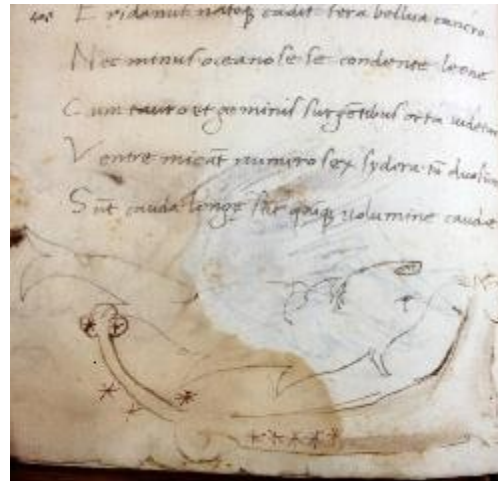 Eridanus natoq cadit fera bellua cancro
Nec minus oceano se se condente leone
Cum tauro et geminis surgētibus orta
Ventre micāt numero sex sydera
Sūt cauda longe volumine caudae